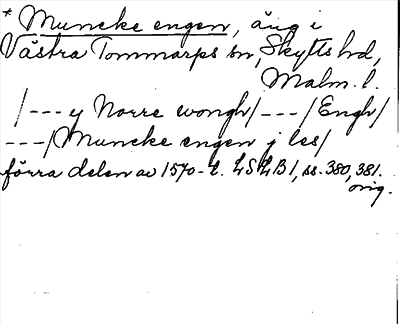 * Muncke engen, äng i
Västra Tommarps sn, Skytts hd,
Malm. l.
/--- y Norre wongh/---/Engh/
---/Muncke engen j les/
förra delen av 1570-t. LSLB 1, ss. 380, 381.
orig.